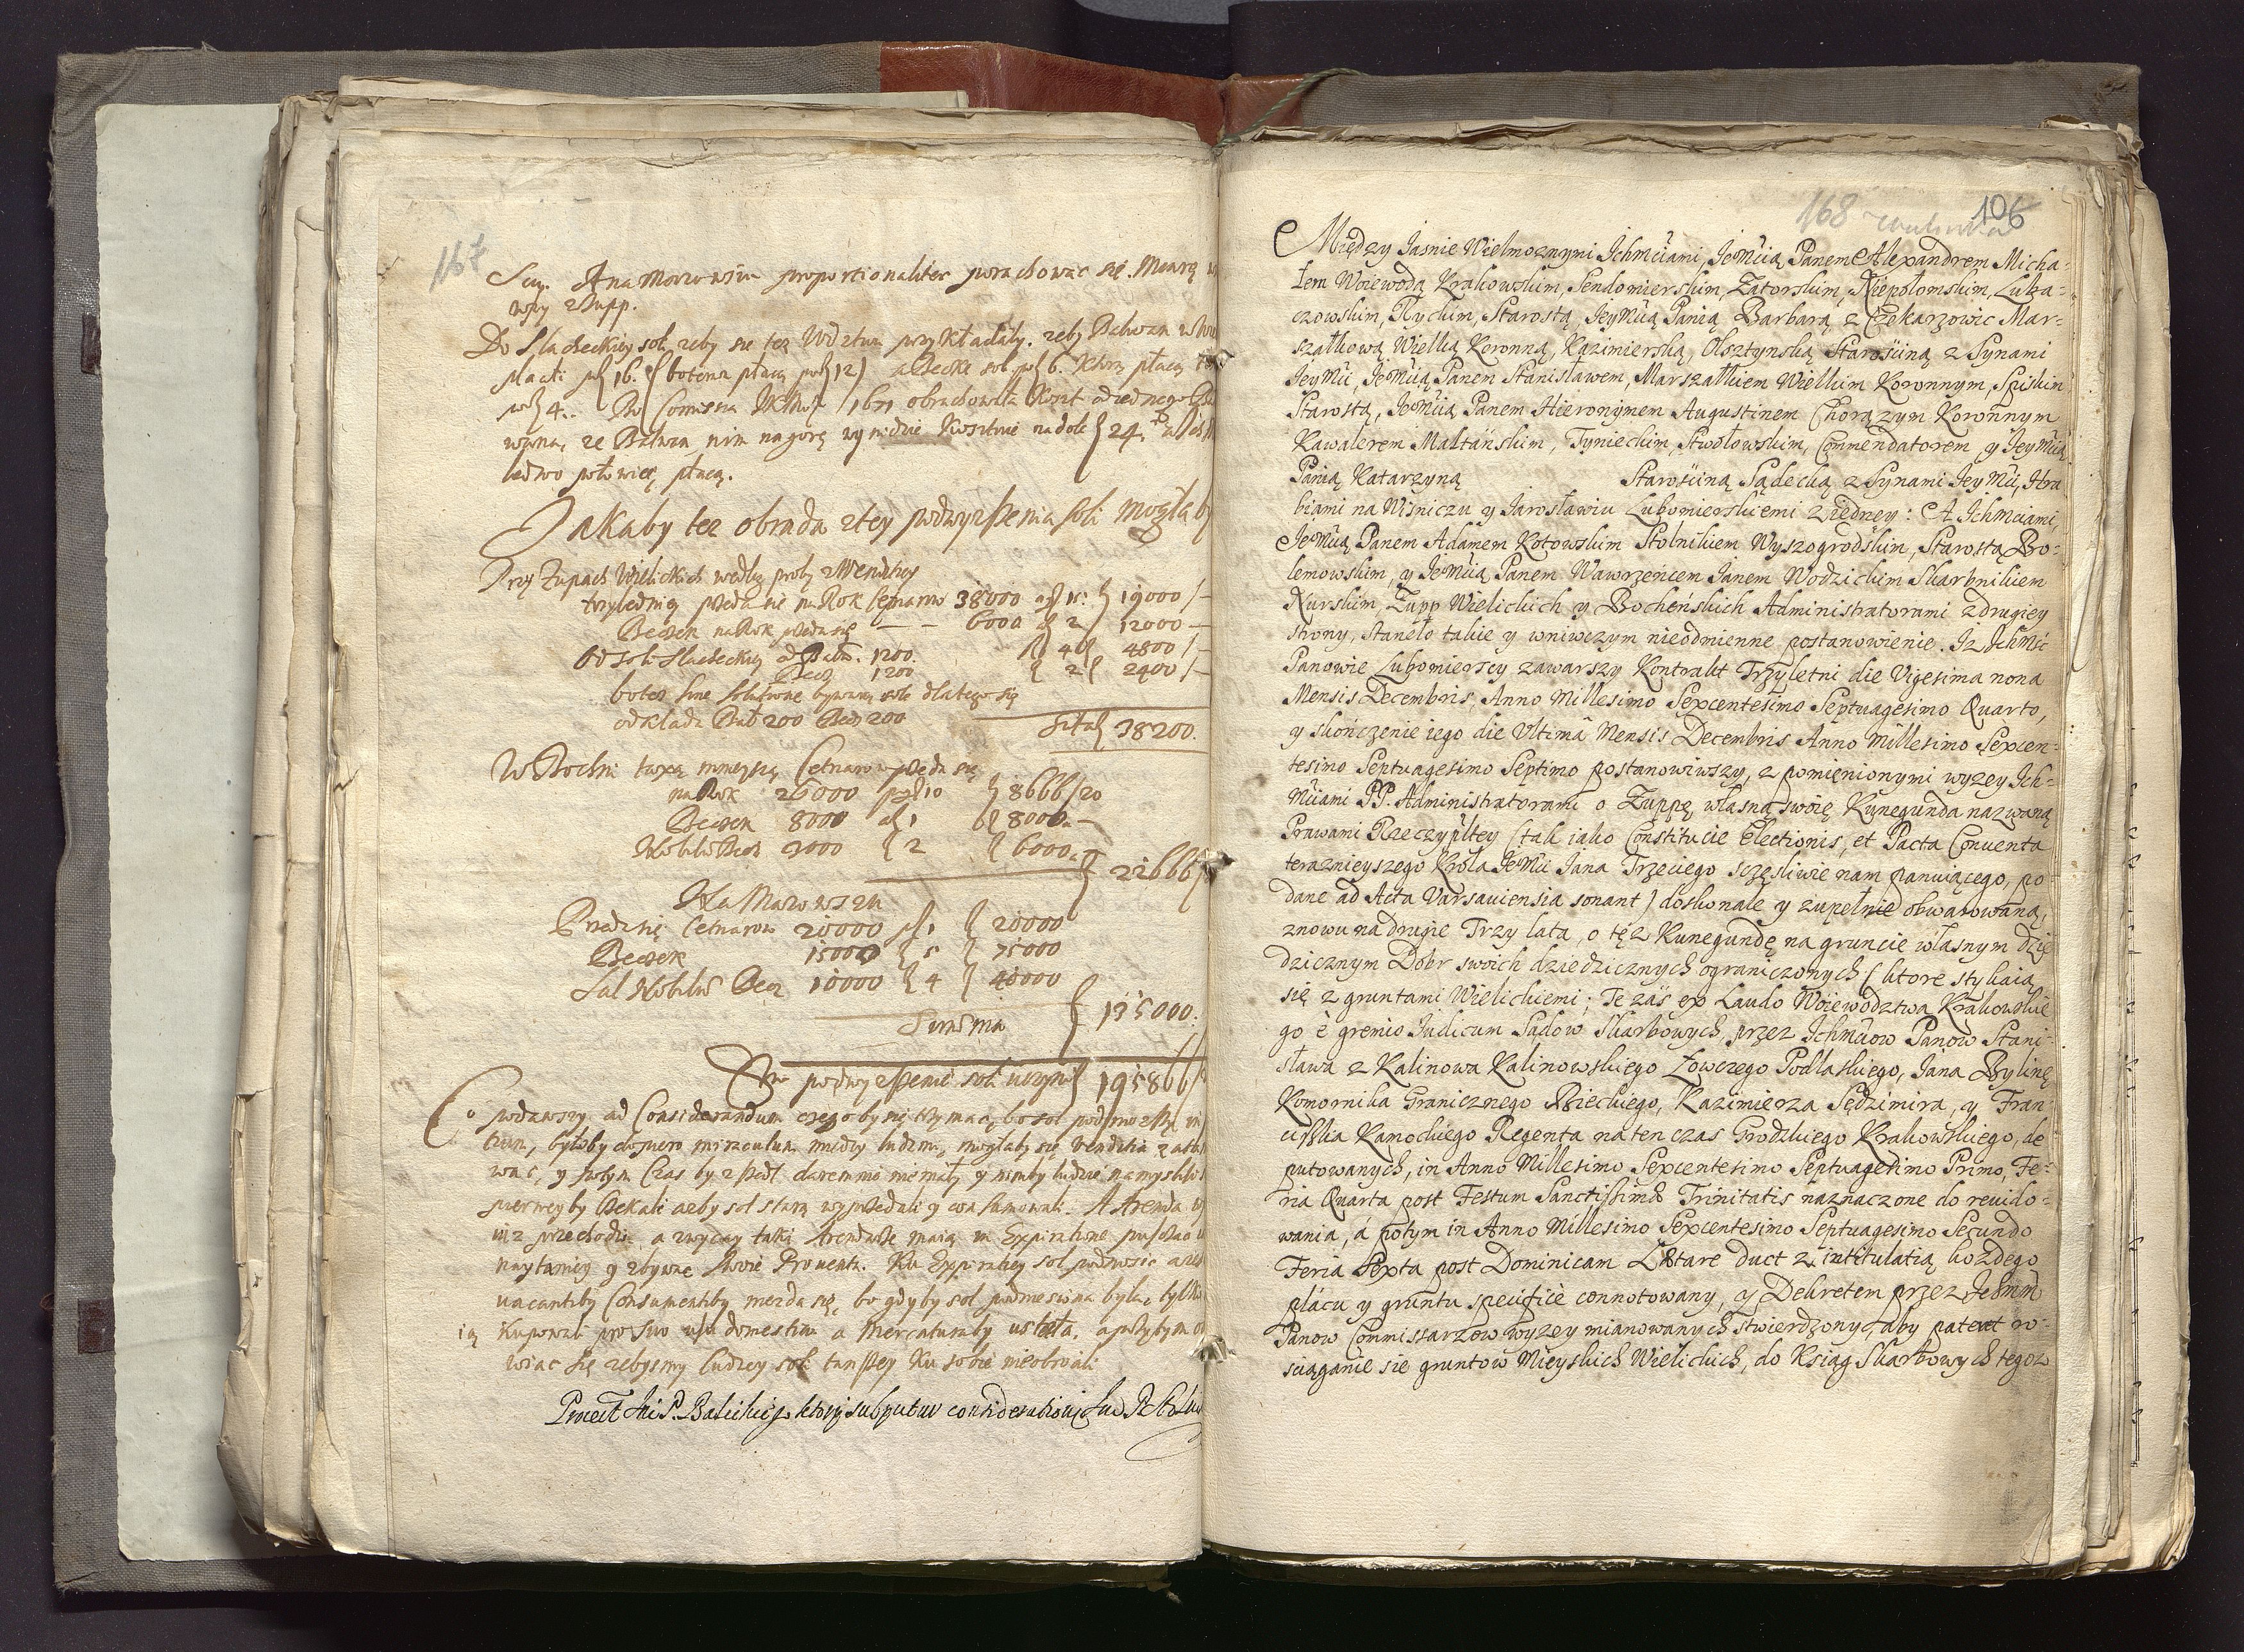 167
Scy. A na Morzowsim proportionaliter porachować się. Miarę
wby z Supp.
Do Slacheckiey soli, zeby sie tez Udztwa przykładały. zeby Bałwan
płacili 16. botena płacą 12) a Beczke soli 6. Ktorą płacą
4. Bo Comissia 1651 obrachowała Koszt od iednego
ze Bałwan nim nagorę wynidzie Kosztuie na dole 24,
ledwo połowicę płacą.
Jakaby tez obrada z tey podwyzszenia soli mogła
Przy Zupach Wielickich według proby zWenditey
trzyletniey przeda się na Rok Cetnarow 38000 a 15: 19000/-
Beczek na Rok przeda się — — 6000 2 12000 —
Od soli Slacheckiey od Bałw. 1200 4 4800/-
Becz 1200 2 2400/-
odkłada Bał 200 Becz 200
38200.
W Bochni taxą mnieyszą Cetnarow przeda się
na Rok 26000 po 10 8666/20
Beczek 8000 a 1 8000. —
3000 2 6000.
22666/
Na Mazowszu
Przeda się Cetnarow 20000 1 20000
Beczek 15000 5 75000
Becz 10000 4 40000
Summa 135000.
podwyzszenie soli uczyni 195866/
Co podawszy ad Considerandum czego by się trzymać, bo sol podwozszy
byłoby dopiero miraculum między ludzmi, mogłaby się Venditia
wac, y potym Czas by zszedł daremnie niemały y nimby ludzie namyslili
pierweyby czekali aeby sol starą wyprzedali y consumowali. A Arenda
iuz przechodzi a zwyczay taki Arendarze maią in Expiratione
naytaniey y zbywać swoie Prouenta. Ku Expiratiey sol podnosic
uacantiby Consumentiby nie zda się, bo gdyby sol podniesiona była, tylkoby
ią Kupowali pro suo usu domestico a Mercaturaby ustała. a potybym
wiac się zebysmy ludzey soli tanszey Ku sobie nieobrocili
Proiect JmP. Balickiego
168 106
Między Jasnie Wielmoznymi Ichmciami, JeMcią Panem Alexandrem Micha-
łem Woiewodą Krakowskim, Sendomierskim, Zatorskim, Niepołomskim, Luba-
czowskim, Ryckim, Starostą, JeyMcią Panią Barbarą z Czekarzowic Mar-
szałkową Wielką Koronną, Kazimierską, Olsztynską Starościną z Synami
JeyMci, JeMcią Panem Stanisławem, Marszałkiem Wielkim Koronnym, Spiskim
Starostą, JeMcią Panem Hieronymem Augustinem Chorązym Koronnym
Kawalerem Maltańskim, Tynieckim, Stwołowskim, Commendatorem y JeyMcią
Panią Katarzyną Starościną Sądecką z Synami JeyMci, Hra
biami na Wisniczu y Jarosławiu Lubomierskiemi z iedney: A Ichmciami,
JeMcią Panem Adamem Kotowskim Stolnikiem Wyszogrodskim, Starostą Bo-
lemowskim, y JeMcią Panem Wawrzeńcem Janem Wodzickim Skarbnikiem
Nurskim, Zupp Wielickich y Bocheńskich Administratorami z drugiey
strony, staneło takie y wniwczym nieodmienne postanowienie. Iz Ichmść
Panowie Lubomierscy zawarszy Kontrakt Trzyletni die Vigesima nona
Mensis Decembris, Anno Millesimo Sexcentesimo Septuagesimo Quarto,
y skończenie iego die Ultimâ Mensis Decembris Anno Millesimo Sexcen-
tesimo Septuagesimo Septimo postanowiwszy, z pomienionymi wyzey Ich-
Mciami PP. Administratorami o Zuppę własną swoię Kunegunda nazwaną
Prawami Rzeczypltey (tak iako Constitucie Electionis, et Pacta Conuenta
teraznieyszego Krola JeMci Jana Trzeciego sczęsliwie nam panuiącego, po-
dane ad Acta Varsauiensia sonant) doskonale y zupełnie obwarowaną,
znowu na drugie Trzy lata, o tęz Kunegundę na gruncie własnym dzie
dzicznym Dobr swoich dziedzicznych ograniczonych (ktore stykaią
się z gruntami Wielickiemi; Te zaś ex Laudo Woiewodztwa Krakowskie
go è gremio Iudicum Sądow Skarbowych, przez Ichmciow Panow Stani-
sława z Kalinowa Kalinowskiego Łowczego Podlaskiego, Jana Bylinę
Komornika Granicznego Bieckiego, Kazimierza Sędzimira, y Fran-
ciszka Kamockiego Regenta na ten czas Grodzkiego Krakowskiego, de
putowanych, in Anno Millesimo Sexcentesimo Septuagesimo Primo, Fe-
ria Quarta post Festum Sanctissimæ Trinitatis naznaczone do reuido-
wania, á potym in Anno Millesimo Sexcentesimo Septuagesimo Secundo
Feria Sexta post Dominicam Lætare duct z intitulatią kozdego
plácu y gruntu specificè connotowany, y Dekretem przez Ichmm
Panow Commissarzow wyzey mianowanych stwierdzony, aby patent ro-
sciąganie sie gruntow Mieyskich Wielickich, do Ksiąg Skarbowych tegoz